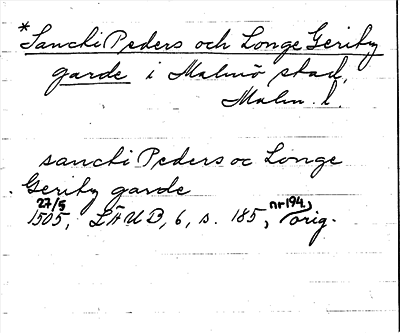 *Sancti Peders och Longe Geritz
garde i Malmö stad,
Malm. l.
sancti Peders oc Longe
Geritz garde
27/5
1505, LÄUB, 6, s. 185, nr 194, orig.